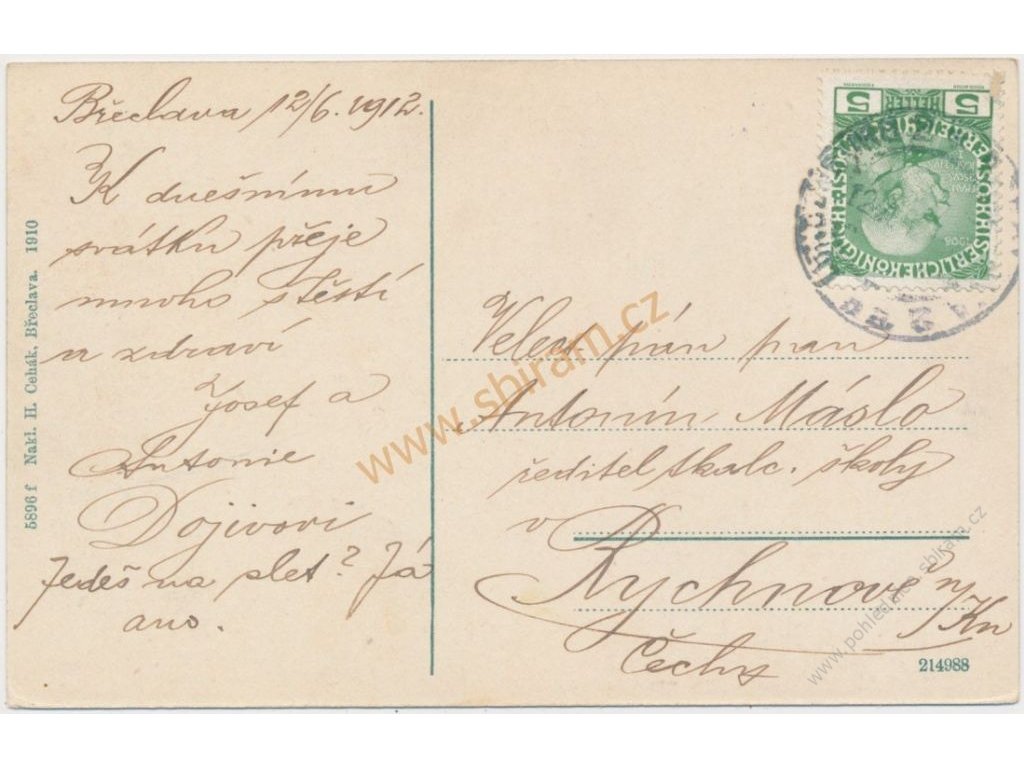 Břeclava 12/6. 1912.
K dnešnímu
svátku přeje
mnoho štěstí
a zdraví
Josef a
Antonie
Dojivovi
Jedeš na slet? Já
ano.
5896 f Nakl. H. Cehák, Břeclava. 1910
5 HELLER 5
1908
Velect. pán pan
Antonín Máslo
ředitel tkalc. školy
v
Rychnově n/Kn
Čechy
214988
www.sbiram.cz
www.pohlednice-sbiram.cz